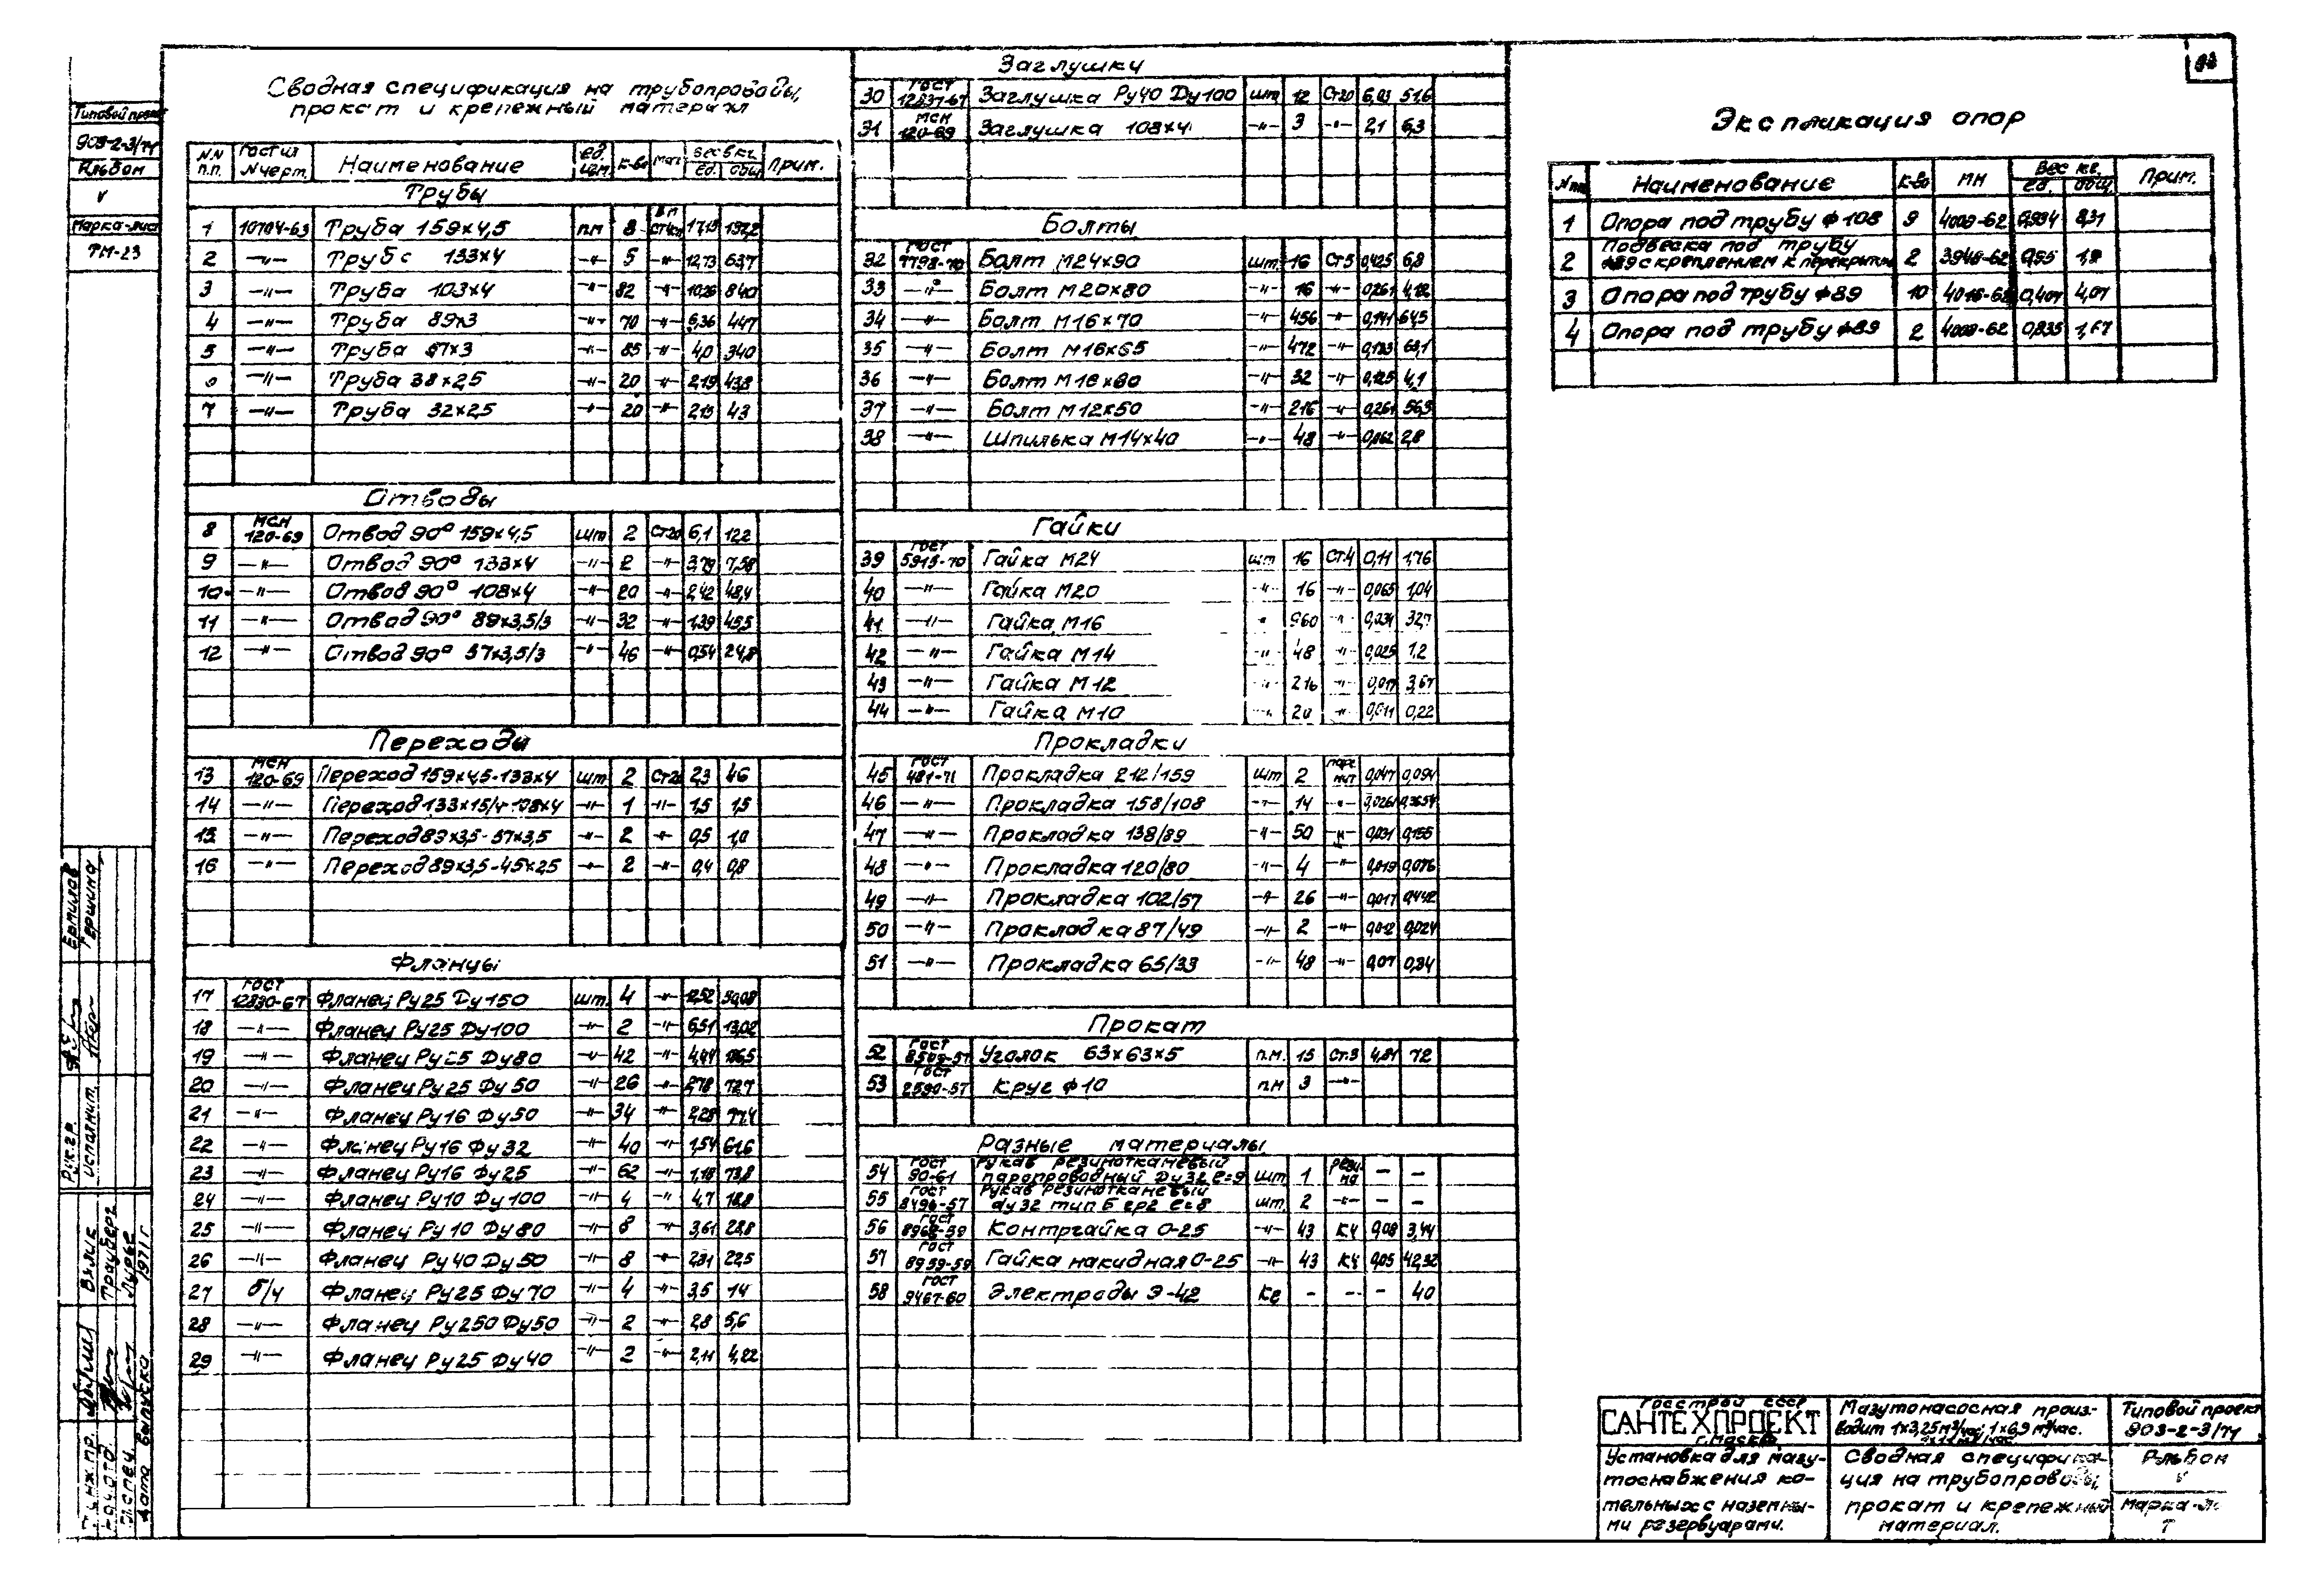 Типовой проект
903-2-3/71
Альбом
V
Марка-лист
ТМ-23
Сводная спецификация на трубопроводы,
прокат и крепежный материал
N.N п.п. | ГОСТ или N черт. | Наименование | ед. изм. | к-во | мат. | Вес в кг. ед. | общ. | Прим.
Трубы
1 10704-63 Труба 159×4,5 п.м 8 17,15 137,2
2 —"— Труба 133×4 —"— 5 —"— 12,73 63,7
3 —"— Труба 103×4 —"— 82 —"— 10,26 840
4 —"— Труба 89×3 —"— 70 —"— 6,36 447
5 —"— Труба 57×3 —"— 85 —"— 4,0 340
6 —"— Труба 38×2,5 —"— 20 —"— 2,19 43,8
7 —"— Труба 32×2,5 —"— 20 —"— 2,15 43
Отводы
8 МСН 120-69 Отвод 90° 159×4,5 шт 2 Ст20 6,1 12,2
9 —"— Отвод 90° 133×4 —"— 2 —"— 3,79 7,58
10 —"— Отвод 90° 108×4 —"— 20 —"— 2,42 48,4
11 —"— Отвод 90° 89×3,5/3 —"— 32 —"— 1,39 45,5
12 —"— Отвод 90° 57×3,5/3 —"— 46 —"— 0,54 24,8
Переходы
13 МСН 120-69 Переход 159×4,5-133×4 шт 2 Ст20 2,3 4,6
14 —"— Переход 133×15/4-108×4 —"— 1 —"— 1,5 1,5
15 —"— Переход 89×3,5-57×3,5 —"— 2 —"— 0,5 1,0
16 —"— Переход 89×3,5-45×2,5 —"— 2 —"— 0,4 0,8
Фланцы
17 ГОСТ 12830-67 Фланец Ру25 Ду150 шт. 4 —"— 12,52 50,08
18 —"— Фланец Ру25 Ду100 —"— 2 —"— 6,51 13,02
19 —"— Фланец Ру25 Ду80 —"— 42 —"— 4,44 186,5
20 —"— Фланец Ру25 Ду50 —"— 26 —"— 2,78 72,7
21 —"— Фланец Ру16 Ду50 —"— 34 —"— 2,28 77,4
22 —"— Фланец Ру16 Ду32 —"— 40 —"— 1,54 61,6
23 —"— Фланец Ру16 Ду25 —"— 62 —"— 1,18 73,8
24 —"— Фланец Ру10 Ду100 —"— 4 —"— 4,7 18,8
25 —"— Фланец Ру10 Ду80 —"— 8 —"— 3,61 28,8
26 —"— Фланец Ру40 Ду50 —"— 8 —"— 2,81 22,5
27 б/ч Фланец Ру25 Ду70 —"— 4 —"— 3,5 14
28 —"— Фланец Ру250 Ду50 —"— 2 —"— 2,8 5,6
29 —"— Фланец Ру25 Ду40 —"— 2 —"— 2,11 4,22
Заглушки
30 ГОСТ 12837-67 Заглушка Ру40 Ду100 шт 12 Ст20 6,03 51,6
31 МСН 120-69 Заглушка 108×4 —"— 3 —"— 2,1 6,3
Болты
32 ГОСТ 7798-70 Болт М24×90 шт. 16 Ст5 0,425 6,8
33 —"— Болт М20×80 —"— 16 —"— 0,261 4,12
34 —"— Болт М16×70 —"— 456 —"— 0,141 64,5
35 —"— Болт М16×65 —"— 472 —"— 0,133 63,1
36 —"— Болт М16×60 —"— 32 —"— 0,125 4,1
37 —"— Болт М12×50 —"— 216 —"— 0,261 56,5
38 —"— Шпилька М14×40 —"— 48 —"— 0,062 2,8
Гайки
39 ГОСТ 5915-70 Гайка М24 шт 16 Ст.4 0,11 1,76
40 —"— Гайка М20 —"— 16 —"— 0,065 1,04
41 —"— Гайка М16 " 960 —"— 0,034 32,7
42 —"— Гайка М14 —"— 48 —"— 0,025 1,2
43 —"— Гайка М12 —"— 216 —"— 0,017 3,67
44 —"— Гайка М10 —"— 20 —"— 0,011 0,22
Прокладки
45 ГОСТ 481-71 Прокладка 212/159 шт 2 0,047 0,094
46 —"— Прокладка 158/108 —"— 14 —"— 0,0261 0,3654
47 —"— Прокладка 138/89 —"— 50 —"— 0,031 0,155
48 —"— Прокладка 120/80 —"— 4 —"— 0,019 0,076
49 —"— Прокладка 102/57 —"— 26 —"— 0,017 0,442
50 —"— Прокладка 87/49 —"— 2 —"— 0,012 0,024
51 —"— Прокладка 65/33 —"— 48 —"— 0,07 0,34
Прокат
52 ГОСТ 8509-57 Уголок 63×63×5 п.м. 15 Ст.3 4,81 72
53 ГОСТ 2590-57 Круг ф10 п.м 3 —"—
Разные материалы
54 ГОСТ 90-61 Рукав резинотканевый паропроводный Ду32 ℓ=9 шт 1 резина — —
55 ГОСТ 8496-57 Рукав резинотканевый ду32 тип Б гр2 ℓ=8 шт. 2 —"— — —
56 ГОСТ 8968-59 Контргайка 0-25 —"— 43 КЧ 0,08 3,44
57 ГОСТ 8959-59 Гайка накидная 0-25 —"— 43 КЧ 0,05 42,32
58 ГОСТ 9467-60 Электроды Э-42 кг - - - 40
Экспликация опор
N пп | Наименование | к-во | МН | Вес кг. ед. | общ. | Прим.
1 Опора под трубу ф108 9 4009-62 0,934 8,31
2 Подвеска под трубу ф89 с креплением к перекрытию 2 3948-62 0,95 1,9
3 Опора под трубу ф89 10 4016-62 0,407 4,07
4 Опора под трубу ф89 2 4009-62 0,835 1,67
Ермилов
Гершина
Рук.гр.
исполнит.
Вялик
Трауберг
Лурье
1971г
Гл.инж.пр.
Нач.ОТО
Гл.спец.
Дата выпуска
Госстрой СССР
САНТЕХПРОЕКТ
г. Москва
Мазутонасосная произ-
водит. 1×3,25 м³/час; 1×6,9 м³/час.
Типовой проект
903-2-3/71
Установка для мазу-
тоснабжения ко-
тельных с наземны-
ми резервуарами.
Сводная специфика-
ция на трубопроводы,
прокат и крепежный
материал.
Альбом
V
Марка-л
Т